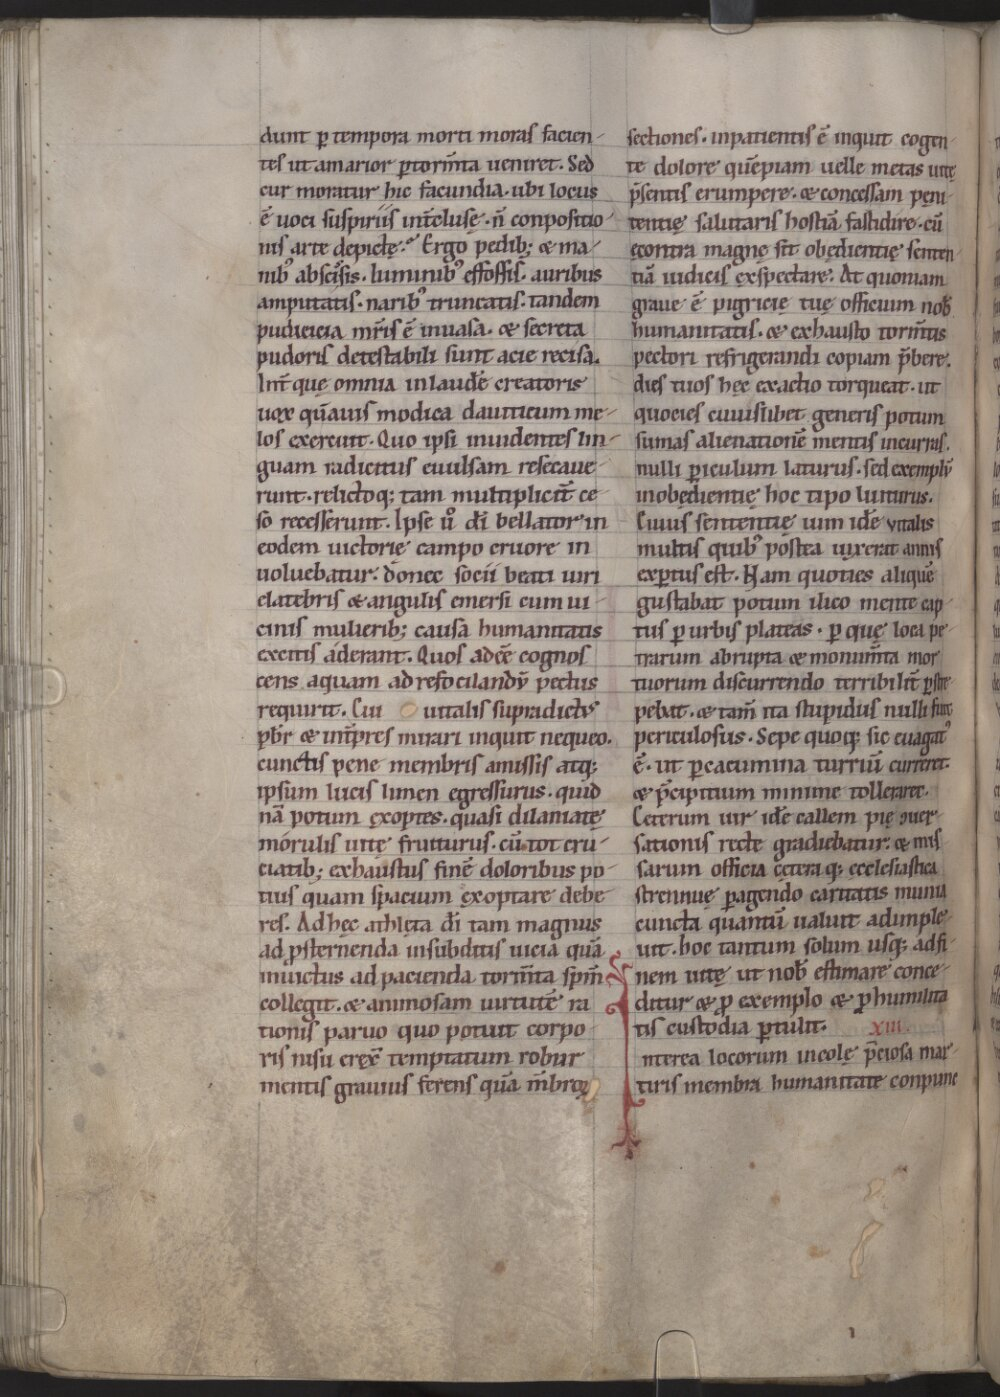 dunt p̱ tempora morti moras facien-
tes ut amarior p̱ torm̄ta ueniret. Sed
cur moratur hic facundia. ubi locus
ē uoci suspiriis int̄clusę. n̄ conpositio
nis arte depictę. Ergo pedib; & ma-
nib᾽ abscisis. luminib᾽ effossis. auribus
amputatis. narib᾽ truncatis. tandem
pudicicia mr̄is ē inuasa. & secreta
pudoris detestabili sunt acie recisa.
Int̄ quę omnia in laudē creatoris
uox quāuis modica dauiticum me-
los exercuit. Quo ipsi inuidentes lin-
guam radicitus euulsam resecaue-
runt. relictoq; tam multiplicit̄ ce-
so recesserunt. Ipse u͛o dī bellator in
eodem uictorię campo cruore in
uoluebatur. donec socii beati uiri
elatebris & angulis emersi cum ui-
cinis mulierib; causa humanitatis
excitis aderant. Quos adeē cognos
cens aquam ad refocilandū pectus
requirit. Cui uitalis supradictus
pb̄r & int̄pres mirari inquit nequeo.
cunctis pene membris amissis atq;
ipsum lucis limen egressurus. quid
nā potum exoptes. quasi dilaniatę
morulis uitę fruiturus. cū tot cru-
ciatib; exhaustus finē doloribus po-
tius quam spacium exoptare debe
res. Ad hęc athleta dī tam magnus
ad p̱sternenda insubditis uicia quā
inuictus ad pacienda torm̄ta sp̄m
collegit. & animosam uirtutē ra
tionis paruo quo potuit corpo
ris nisu erex̄ temptatum robur
mentis grauius ferens quā m̄broꝝ
sectiones. inpatientis ē inquit cogen-
te dolore quēpiam uelle metas uitę
p̄sentis erumpere. & concessam pęni
tentię salutaris hostiā fastidire. cū
econtra magnę sit obędientię senten
tiā iudicis exspectare. At quoniam
graue ē pigricię tuę officium nob̄
humanitatis. & exhausto torm̄tis
pectori refrigerandi copiam p̄bere.
dies tuos hęc exactio torqueat. ut
quocies cuiuslibet generis potum
sumas alienationē mentis incurras.
nulli p̱iculum laturus. sed exemplū
inobędientię hoc tipo luiturus.
Cuius sententię uim idē vitalis
multis quib᾽ postea uixerat annis
exp̱tus est. Nam quoties aliquē
gustabat potum ilico mente cap-
tus p̱ urbis plateas. p̱quę loca pe-
trarum abrupta & monum̄ta mor
tuorum discurrendo terribilit̄ p̱stre-
pebat. & tam̄ ita stupidus nulli fuit
periculosus. Sepe quoq; sic euagat᾽
ē. ut p̱ cacumina turriū curreret.
& p̄cipitium minime tolleraret.
Ceterum uir idē callem pię ɔuer-
sationis recte gradiebatur. & mis
sarum officia cęteraq; ecclesiastica
strennuę p̱agendo caritatis munia
cuncta quantū ualuit adimple-
uit. hoc tantum solum usq; ad fi-
nem uitę ut nob̄ estimare conce-
ditur & p̱ exemplo & p̱ humilita
tis custodia p̱tulit. XIII.
Interea locorum incolę p̄ciosa mar-
tiris membra humanitate conpunc